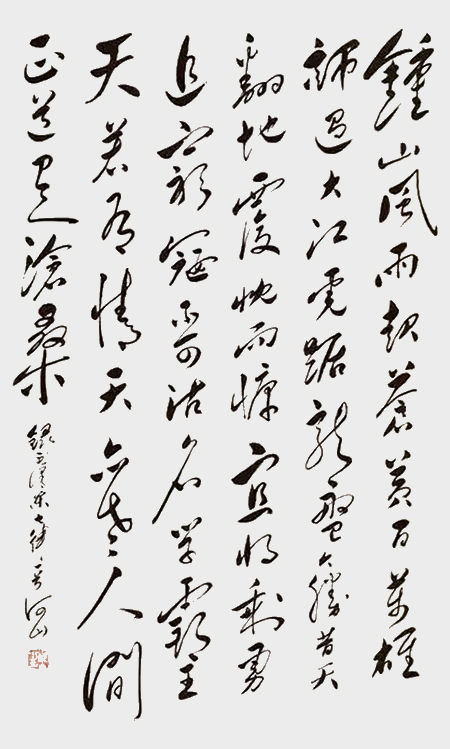 鍾山風雨起蒼黃百萬雄
師過大江虎踞龍盤今勝昔天
翻地覆慨而慷宜將剩勇
追窮寇不可沽名學霸王
天若有情天亦老人間
正道是滄桑
錄毛澤東七律一首河山